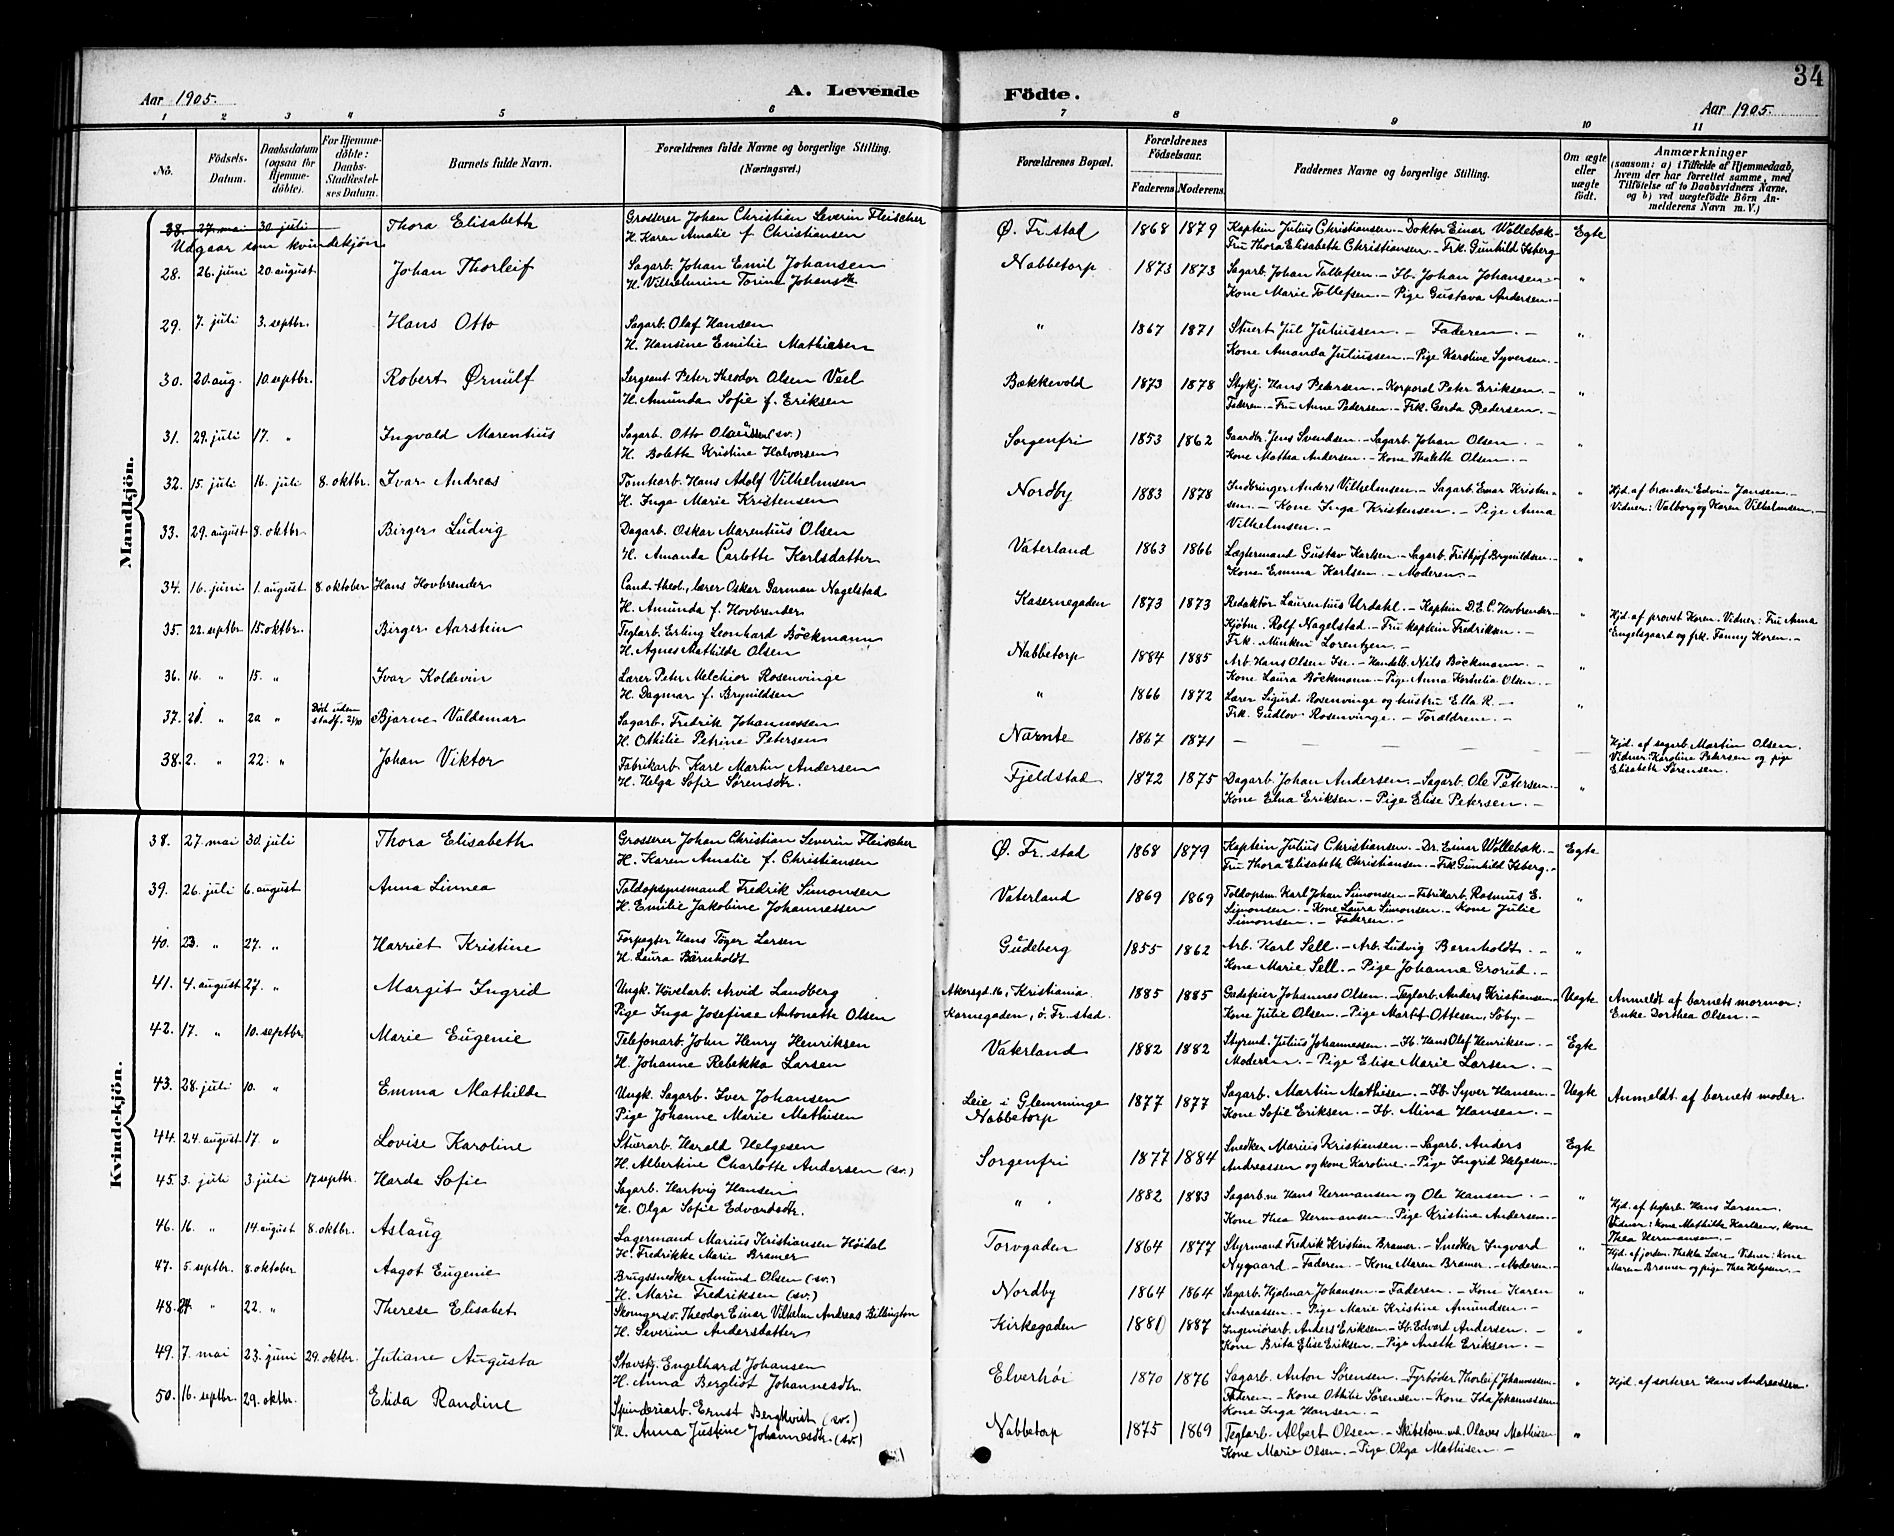 34
Aar 1905.
A. Levende
Födte.
Aar 1905.
1 2 3 4 5 6 7 8 9 10 11
No. Födsels-Datum. Daabsdatum (ogsaa for Hjemmedöbte). For Hjemmedöbte: Daabs-Stadfæstelses Datum. Barnets fulde Navn. Forældrenes fulde Navne og borgerlige Stilling. (Næringsvei.) Forældrenes Bopæl. Forældrenes Födselsaar. Faderens Moderens. Faddernes Navne og borgerlige Stilling. Om ægte eller uægte födt. Anmærkninger (saasom: a) i Tilfælde af Hjemmedaab, hvem der har forrettet samme, med Tilföielse af to Daabsvidners Navne, og b) ved uægtefödte Börn Anmelderens Navn m. V.)
Mandkjön.
38. 27. mai 30. juli Thora Elisabeth Grosserer Johan Christian Severin Fleischer Ø. Fr.stad 1868 1879 Kaptein Julius Christiansen - Doktor Einar Wollebæk - Egte
Udgaar som kvindekjøn H. Karen Amalie f. Christiansen Fru Thora Elisabeth Christiansen - Frk. Gunhild Isberg -
28. 26. juni 20. august Johan Thorleif Sagarb. Johan Emil Johansen Nabbetorp 1873 1873 Sagarb. Johan Tollefsen. - Hb. Johan Johansen. - "
H. Vilhelmine Torine Johansdtr. Kone Marie Tollefsen - Pige Gustava Andersen. -
29. 7. juli 3. septbr. Hans Otto Sagarb. Olaf Hansen " 1867 1871 Stuert Jul Juliussen. - Faderen. - "
H. Hansine Emilie Mathiesen Kone Amanda Juliussen. - Pige Karoline Syversen. -
30. 20. aug. 10. septbr. Robert Ørnulf Sergeant Peter Theodor Olsen Veel Bækkevold 1873 1878 Stykj. Hans Petersen. - Korporal Peter Eriksen. - "
H. Amunda Sofie f. Eriksen Faderen. - Fru Anne Pedersen. - Frk. Gerda Pedersen. -
31. 29. juli 17. " Ingvald Marentius Sagarb. Otto Olaussen (sv.) Sorgenfri 1853 1862 Gaardbr. Jens Svendsen. - Sagarb. Johan Olsen. - "
H. Bolette Kristine Halvorsen Kone Mathea Andersen. - Kone Thalette Olsen. -
32. 15. juli 16. juli 8. oktbr. Ivar Andreas Tomtearb. Hans Adolf Vilhelmsen Nordby 1883 1878 Indbringer Anders Vilhelmsen - Sagarb. Einar Kristen- " Hjd. af brænder Edvin Jansen. -
H. Inga Marie Kristensen sen. - Kone Inga Kristensen. - Pige Anna Vidner: Valborg og Karen Vilhelmsen. -
Vilhelmsen. -
33. 29. august 8. oktbr. Birger Ludvig Dagarb. Oskar Marentius Olsen Vaterland 1863 1866 Lægtermand Gustav Karlsen - Sagarb. Frithjof Brynildsen. - "
H. Amanda Carlotte Karlsdatter Kone Emma Karlsen. - Moderen. -
34. 16. juni 1. august 8. oktober Hans Hovbrender Cand. theol., lærer Oskar Garman Nagelstad Kasernegaden 1873 1873 Redaktør Laurentius Urdahl. - Kaptein D.E.C. Hovbrender - " Hjd. af provst Koren. Vidner: Fru Anna
H. Amunda f. Hovbrender Kjøbm. Rolf Nagelstad. - Fru kaptein Fredriksen. - Engelsgaard og frk. Fanny Koren. -
Frk. Minken Lorentzen. -
35. 22. septbr. 15. oktbr. Birger Aarstein Teglarb. Erling Leonhard Böckmann Nabbetorp 1884 1885 Arb. Hans Olsen Ise. - Handelb. Nils Böckmann. - "
H. Agnes Mathilde Olsen Kone Laura Böckmann - Pige Anna Kornelia Olsen. -
36. 16. " 15. " Ivar Koldevin Lærer Peter Melchior Rosenvinge " 1866 1872 Lærer Sigurd Rosenvinge og hustru Ella R. - "
H. Dagmar f. Brynildsen Frk. Gudlov Rosenvinge. - Forældrene. -
37. 21. " 22 " Död uden stadf. 24/10 Bjarne Valdemar Sagarb. Fredrik Johannessen Narnte 1867 1871 - - - - Hjd. af sagarb Martin Olsen.
H. Othilie Petrine Petersen Vidner: Karoline Petersen og pige Elisabeth Sørensen.
38. 2. " 22. " Johan Viktor Fabrikarb. Karl Martin Andersen Fjeldstad 1872 1875 Dagarb. Johan Andersen. - Sagarb. Ole Petersen. - "
H. Helga Sofie Sørensdtr. Kone Elna Eriksen. - Pige Elise Petersen. -
Kvindekjön.
38. 27. mai 30. juli Thora Elisabeth Grosserer Johan Christian Severin Fleischer Ø. Fr.stad 1868 1879 Kaptein Julius Christiansen. - Dr. Einar Wollebæk. - Egte
H. Karen Amalie f. Christiansen Fru Thora Elisabeth Christiansen. - Frk Gunhild Isberg. -
39. 26. juli 6. august Anna Linnea Toldopsynsmand Fredrik Simonsen Vaterland 1869 1869 Toldopsm. Karl Johan Simonsen. - Fabrikarb. Rasmus E. "
H. Emilie Jakobine Johannessen Simonsen. - Kone Laura Simonsen. - Kone Julie
Simonsen. - Faderen. -
40. 23. " 27. " Harriet Kristine Forpagter Hans Tøger Larsen Gudeberg 1855 1862 Arb. Karl Sell. - Arb. Ludvig Bernholdt. - "
H. Laura Bärnholdt Kone Marie Sell. - Pige Johanne Grorud. -
41. 4. august 27. " Margit Ingrid Ungk. Hövelarb. Arvid Landberg Akersgd. 16, Kristiania. 1885 1885 Gadefeier Johannes Olsen. - Teglarb. Anders Kristiansen - Uegte Anmeldt af barnets mormor:
Pige Inga Josefine Antonette Olsen Kornegaden, ö. Fr.stad. Kone Julie Olsen. - Pige Aarbit Ottesen, Söby. - Enke Dorthea Olsen. -
42. 17. " 10. septbr. Marie Eugenie Telefonarb. John Henry Henriksen Vaterland 1882 1882 Styrmd. Julius Johannessen. - Hb. Hans Olaf Henriksen. - Egte
H. Johanne Rebekka Larsen Moderen. - Pige Elise Marie Larsen. -
43. 28. juli 10. " Emma Mathilde Ungk. Sagarb. Iver Johansen Leie i Glemminge 1877 1877 Sagarb. Martin Mathisen. - Hb. Syver Hansen. - Uegte Anmeldt af barnets moder.
Pige Johanne Marie Mathisen Nabbetorp Kone Sofie Eriksen. - Hb. Mina Hansen. -
44. 24. august 17. " Lovise Karoline Stuerarb. Harald Helgesen Sorgenfri 1877 1884 Snedker Marius Kristiansen. - Sagarb. Anders Egte
H. Albertine Charlotte Andersen (sv.) Andreassen og kone Karoline. - Pige Ingrid Helgesen. -
45. 3. juli 3. juli 17 septbr. Harda Sofie Sagarb. Hartvig Hansen " 1882 1883 Sagarb.ne Hans Hermansen og Ole Hansen. - " Hjd. af teglarb. Hans Larsen.
H. Olga Sofie Edvardsdtr. Kone Thea Hermansen. - Pige Kristine Andersen. - Vidner: kone Mathilde Karlsen, kone Thea Hermansen. -
46. 16. " 14. august 8. oktbr. Aslaug Lagermand Marius Kristiansen Höidal Torvgaden 1864 1877 Styrmand Fredrik Kristian Bramer. - Snedker Ingvard " Hjd. af jordm. Thekla Lære. - Vidner: Kone
H. Fredrikke Marie Bramer Nygaard - Faderen. - Kone Maren Bramer. - Moderen. - Maren Bramer og pige Thea Helgesen. -
47. 5. septbr. 8. oktober Aagot Eugenie Brugssnedker Amund Olsen (sv.) Nordby 1864 1864 Sagarb. Hjalmar Johansen. - Faderen. - Kone Karen "
H. Marie Fredriksen (sv.) Andreassen. - Pige Marie Kristine Amundsen. -
48. 24. " 22. " Therese Elisabet Skomgersv. Theodor Einar Vilhelm Andreas Billington Kirkegaden 1881 1887 Ingeniörarb. Anders Eriksen. - Hb. Edvard Andersen. - "
H. Severine Andersdatter Kone Brita Elise Eriksen. - Pige Anette Eriksen. -
49. 7. mai 23. juni 29. oktbr. Juliane Augusta Stavskj. Engelhard Johansen Elverhöi 1870 1876 Sagarb. Anton Sörensen. - Fyrböder Thorleif Johannssen. - " Hjd. af sorterer Hans Andreassen.
H. Anna Bergliot Johannesdtr. Faderen. - Kone Othilie Sörensen. - Kone Ida Johannssen
Kone Inga Hansen. -
50. 16. septbr. 29. oktbr. Elida Randine Spinderiarb. Ernst Bergkvist (sv.) Nabbetorp 1875 1869 Teglarb. Albert Olsen. - Skibstöm.md. Olaves Mathisen "
H. Anna Justine Johannesdtr. (sv.) Kone Marie Olsen. - Pige Olga Mathisen. -